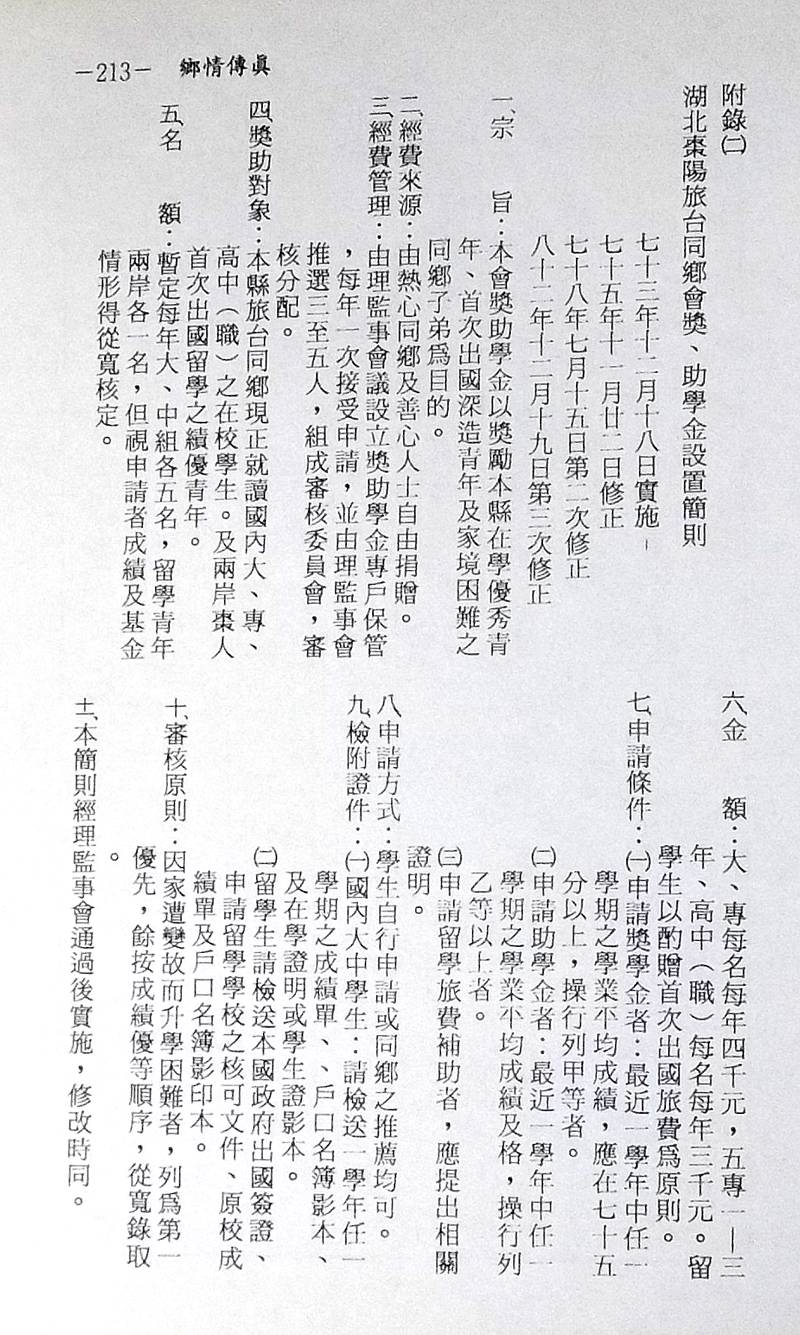 —213— 鄉情傳眞
附錄㈡
湖北棗陽旅台同鄉會獎、助學金設置簡則
七十三年十二月十八日實施
七十五年十一月廿二日修正
七十八年七月十五日第二次修正
八十二年十二月十九日第三次修正
一、宗　　旨：本會獎助學金以獎勵本縣在學優秀青
年、首次出國深造青年及家境困難之
同鄉了弟爲目的。
二、經費來源：由熱心同鄉及善心人士自由捐贈。
三、經費管理：由理監事會議設立獎助學金專戶保管
，每年一次接受申請，並由理監事會
推選三至五人，組成審核委員會，審
核分配。
四、獎助對象：本縣旅台同鄉現正就讀國內大、專、
高中（職）之在校學生。及兩岸棗人
首次出國留學之績優青年。
五、名　　額：暫定每年大、中組各五名，留學青年
兩岸各一名，但視申請者成績及基金
情形得從寬核定。
六、金　　額：大、專每名每年四千元，五專一—三
年、高中（職）每名每年三千元。留
學生以酌贈首次出國旅費爲原則。
七、申請條件：㈠申請獎學金者：最近一學年中任一
學期之學業平均成績，應在七十五
分以上，操行列甲等者。
㈡申請助學金者：最近一學年中任一
學期之學業平均成績及格，操行列
乙等以上者。
㈢申請留學旅費補助者，應提出相關
證明。
八、申請方式：學生自行申請或同鄉之推薦均可。
九、檢附證件：㈠國內大中學生：請檢送一學年任一
學期之成績單、、戶口名簿影本、
及在學證明或學生證影本。
㈡留學生請檢送本國政府出國簽證、
申請留學學校之核可文件、原校成
績單及戶口名簿影印本。
十、審核原則：因家遭變故而升學困難者，列爲第一
優先，餘按成績優等順序，從寬錄取
。
十一、本簡則經理監事會通過後實施，修改時同。